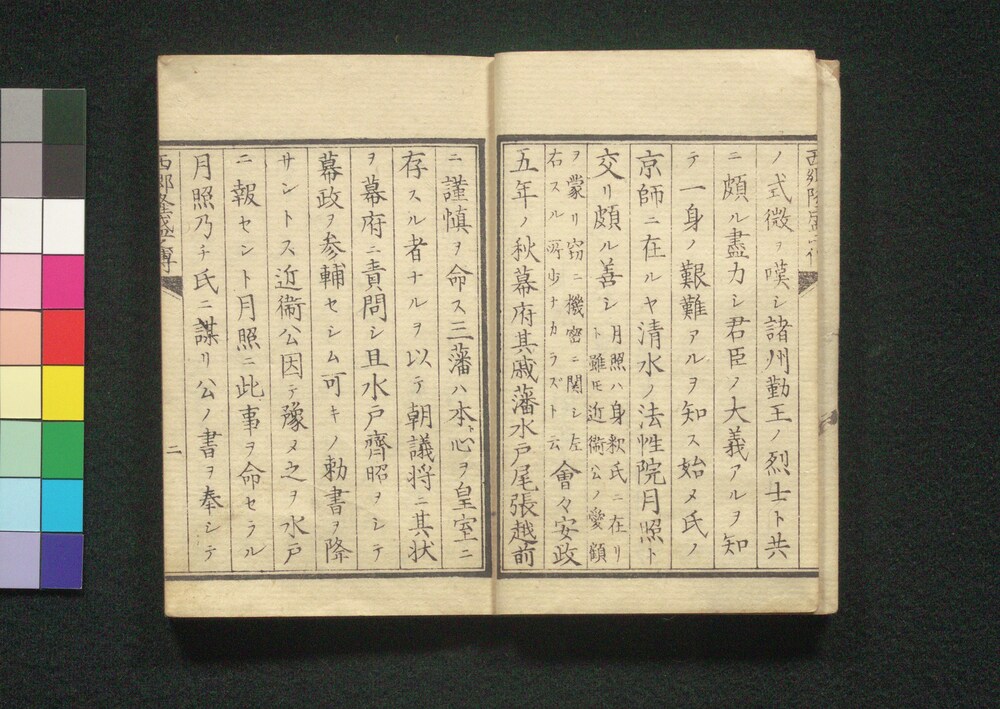 西郷隆盛傳
ノ式微ヲ嘆シ諸州勤王ノ烈士ト共
ニ頗ル盡力シ君臣ノ大義アルヲ知
テ一身ノ艱難アルヲ知ス始メ氏ノ
京師ニ在ルヤ清水ノ法性院月照ト
交リ頗ル善シ
月照ハ身釈氏ニ在リ
ト雖モ近衞公ノ愛顧
ヲ蒙リ窃ニ機密ニ関シ左
右スル所少ナカラズト云
會々安政
五年ノ秋幕府其戚藩水戸尾張越前
ニ謹慎ヲ命ス三藩ハ本ト心ヲ皇室ニ
存スル者ナルヲ以テ朝議将ニ其状
ヲ幕府ニ責問シ且水戸齊昭ヲシテ
幕政ヲ参輔セシム可キノ勅書ヲ降
サントス近衞公因テ豫メ之ヲ水戸
ニ報セント月照ニ此事ヲ命セラル
月照乃チ氏ニ謀リ公ノ書ヲ奉シテ
西郷隆盛傳
二